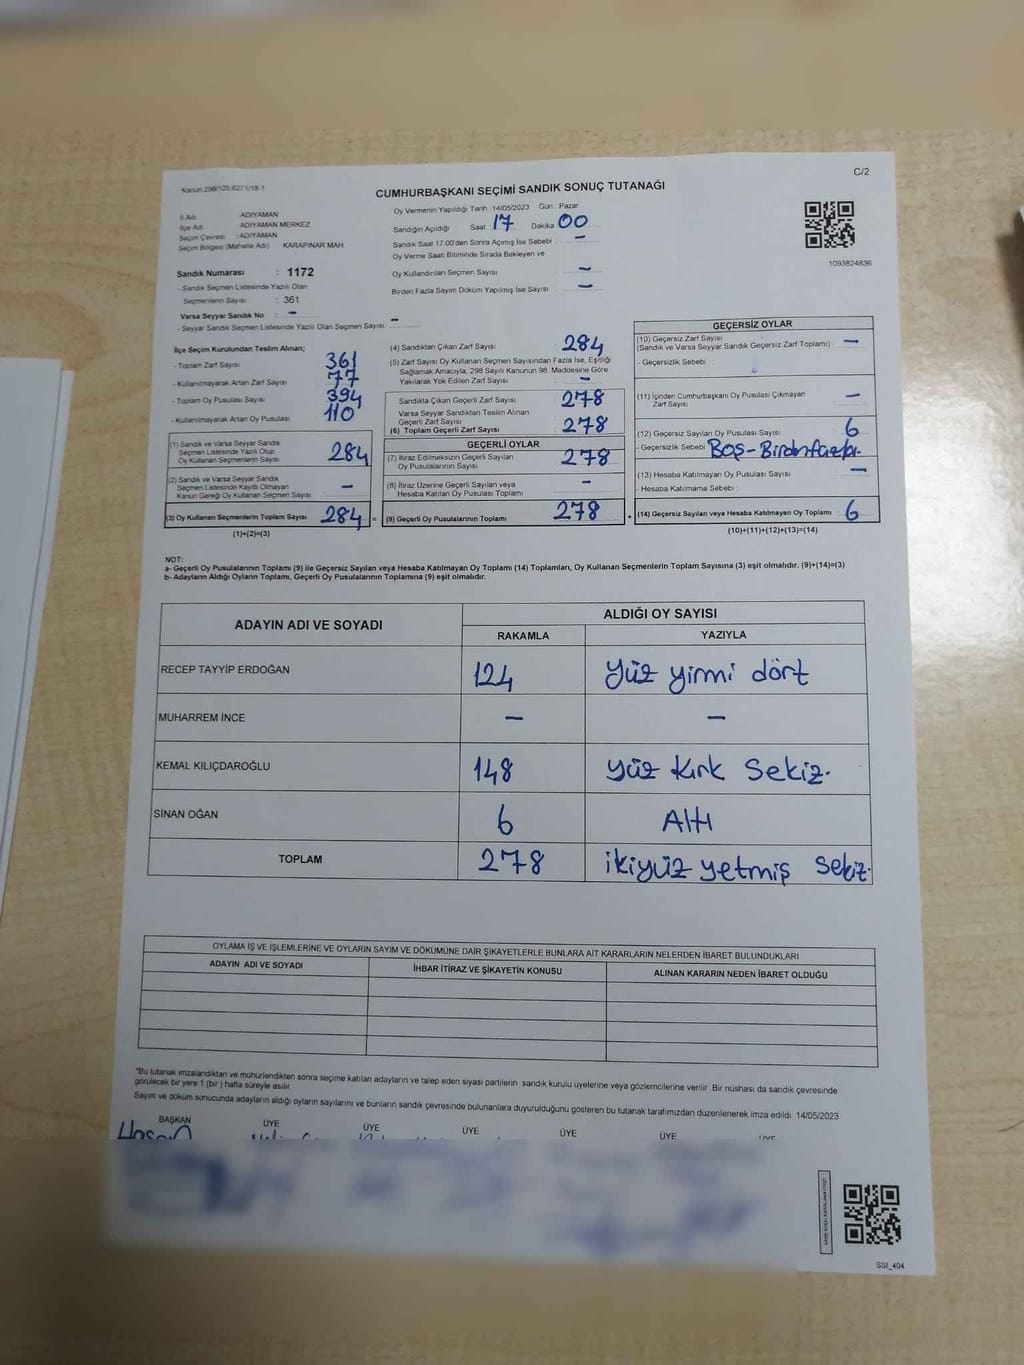 Kanun:298/105,6271/18-1
C/2
CUMHURBAŞKANI SEÇİMİ SANDIK SONUÇ TUTANAĞI
İl Adı : ADIYAMAN
İlçe Adı : ADIYAMAN MERKEZ
Seçim Çevresi : ADIYAMAN
Seçim Bölgesi (Mahalle Adı) : KARAPINAR MAH.
Sandık Numarası : 1172
- Sandık Seçmen Listesinde Yazılı Olan
Seçmenlerin Sayısı : 361
Varsa Seyyar Sandık No : -
- Seyyar Sandık Seçmen Listesinde Yazılı Olan Seçmen Sayısı : -
Oy Vermenin Yapıldığı Tarih :14/05/2023 Gün : Pazar
Sandığın Açıldığı Saat : 17 Dakika : 00
Sandık Saat 17:00'den Sonra Açılmış İse Sebebi : -
Oy Verme Saati Bitiminde Sırada Bekleyen ve
Oy Kullandırılan Seçmen Sayısı : -
Birden Fazla Sayım Döküm Yapılmış İse Sayısı : -
1093824836
İlçe Seçim Kurulundan Teslim Alınan;
- Toplam Zarf Sayısı : 361
- Kullanılmayarak Artan Zarf Sayısı : 77
- Toplam Oy Pusulası Sayısı : 394
- Kullanılmayarak Artan Oy Pusulası : 110
(1) Sandık ve Varsa Seyyar Sandık
Seçmen Listesinde Yazılı Olup
Oy Kullanan Seçmenlerin Sayısı : 284
(2) Sandık ve Varsa Seyyar Sandık
Seçmen Listesinde Kayıtlı Olmayan
Kanun Gereği Oy Kullanan Seçmen Sayısı : -
(3) Oy Kullanan Seçmenlerin Toplam Sayısı : 284 =
(1)+(2)=(3)
(4) Sandıktan Çıkan Zarf Sayısı : 284
(5) Zarf Sayısı Oy Kullanan Seçmen Sayısından Fazla İse, Eşitliği
Sağlamak Amacıyla; 298 Sayılı Kanunun 98. Maddesine Göre
Yakılarak Yok Edilen Zarf Sayısı : -
Sandıkta Çıkan Geçerli Zarf Sayısı : 278
Varsa Seyyar Sandıktan Teslim Alınan
Geçerli Zarf Sayısı :
(6) Toplam Geçerli Zarf Sayısı : 278
GEÇERLİ OYLAR
(7) İtiraz Edilmeksizin Geçerli Sayılan
Oy Pusulalarının Sayısı : 278
(8) İtiraz Üzerine Geçerli Sayılan veya
Hesaba Katılan Oy Pusulası Toplamı : -
(9) Geçerli Oy Pusulalarının Toplamı : 278 +
GEÇERSİZ OYLAR
(10) Geçersiz Zarf Sayısı : -
(Sandık ve Varsa Seyyar Sandık Geçersiz Zarf Toplamı)
- Geçersizlik Sebebi :
(11) İçinden Cumhurbaşkanı Oy Pusulası Çıkmayan
Zarf Sayısı : -
(12) Geçersiz Sayılan Oy Pusulası Sayısı : 6
- Geçersizlik Sebebi : Boş-Birdenfazla.
(13) Hesaba Katılmayan Oy Pusulası Sayısı : -
- Hesaba Katılmama Sebebi :
(14) Geçersiz Sayılan veya Hesaba Katılmayan Oy Toplamı : 6
(10)+(11)+(12)+(13)=(14)
NOT:
a- Geçerli Oy Pusulalarının Toplamı (9) ile Geçersiz Sayılan veya Hesaba Katılmayan Oy Toplamı (14) Toplamları, Oy Kullanan Seçmenlerin Toplam Sayısına (3) eşit olmalıdır. (9)+(14)=(3)
b- Adayların Aldığı Oyların Toplamı, Geçerli Oy Pusulalarının Toplamına (9) eşit olmalıdır.
ADAYIN ADI VE SOYADI ALDIĞI OY SAYISI
RAKAMLA YAZIYLA
RECEP TAYYİP ERDOĞAN 124 Yüz yirmi dört
MUHARREM İNCE - -
KEMAL KILIÇDAROĞLU 148 yüz Kırk Sekiz.
SİNAN OĞAN 6 Altı
TOPLAM 278 ikiyüz yetmiş Sekiz.
OYLAMA İŞ VE İŞLEMLERİNE VE OYLARIN SAYIM VE DÖKÜMÜNE DAİR ŞİKAYETLERLE BUNLARA AİT KARARLARIN NELERDEN İBARET BULUNDUKLARI
ADAYIN ADI VE SOYADI İHBAR İTİRAZ VE ŞİKAYETİN KONUSU ALINAN KARARIN NEDEN İBARET OLDUĞU
*Bu tutanak imzalandıktan ve mühürlendikten sonra seçime katılan adayların ve talep eden siyasi partilerin sandık kurulu üyelerine veya gözlemcilerine verilir. Bir nüshası da sandık çevresinde
görülecek bir yere 1 (bir ) hafta süreyle asılır.
Sayım ve döküm sonucunda adayların aldığı oyların sayılarını ve bunların sandık çevresinde bulunanlara duyurulduğunu gösteren bu tutanak tarafımızdan düzenlenerek imza edildi. 14/05/2023
BAŞKAN ÜYE ÜYE ÜYE ÜYE ÜYE ÜYE
Hasan
SSI_404